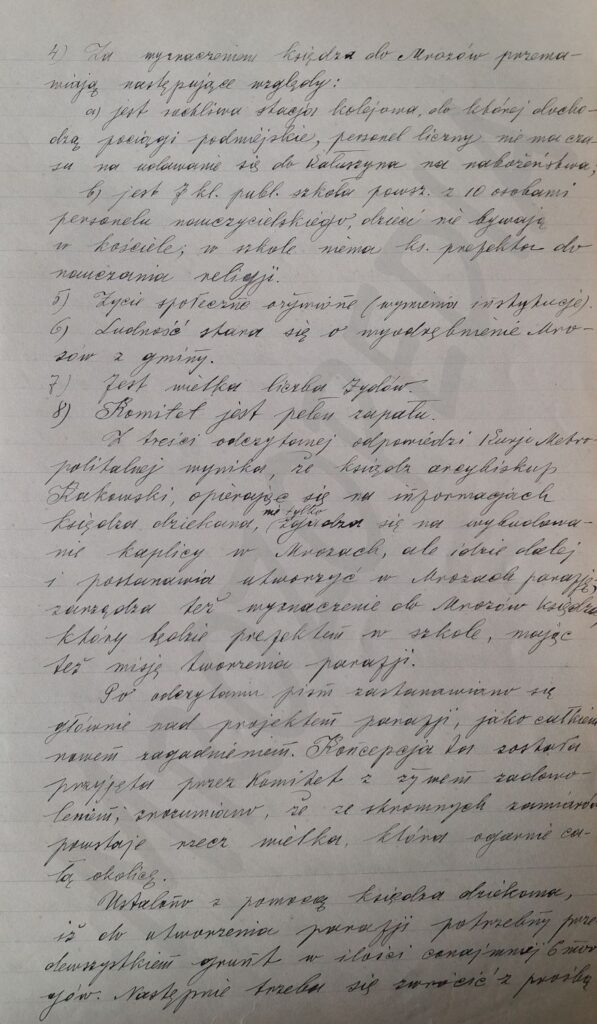 4) Za wyznaczeniem księdza do Mrozów przema-
wiają następujące względy:
a) jest ruchliwa stacja kolejowa, do której docho-
dzą pociągi podmiejskie, personel liczny nie ma cza-
su na udawanie się do Kałuszyna na nabożeństwa,
b) jest 7 kl. publ. szkoła powsz. z 10 osobami
personelu nauczycielskiego, dzieci nie bywają
w kościele; w szkole niema ks. prefekta do
nauczania religji.
5) Życie społeczne ożywione (wymienia instytucje).
6) Ludność stara się o wyodrębnienie Mro-
zów z gminy.
7) Jest wielka liczba Żydów.
8) Komitet jest pełen zapału.
Z treści odczytanej odpowiedzi Kurji Metro-
politalnej wynika, że ksiądz arcybiskup
Kakowski, opierając się na informacjach
księdza dziekana, nie tylko zgadza się na wybudowa-
nie kaplicy w Mrozach, ale idzie dalej
i postanawia utworzyć w Mrozach parafję,
zarządza też wyznaczenie do Mrozów księdza,
który będzie prefektem w szkole, mając
też misję tworzenia parafji.
Po odczytaniu pism zastanawiano się
głównie nad projektem parafji, jako całkiem
nowem zagadnieniem. Koncepcja ta została
przyjęta przez Komitet z żywem zadowo-
leniem; zrozumiano, że ze skromnych zamiarów
powstaje rzecz wielka, która ogarnie ca-
łą okolicę.
Ustalono z pomocą księdza dziekana,
iż do utworzenia parafji potrzebny prze-
dewszystkiem grunt w ilości conajmniej 6 mor-
gów. Następnie trzeba się zwrócić z prośbą